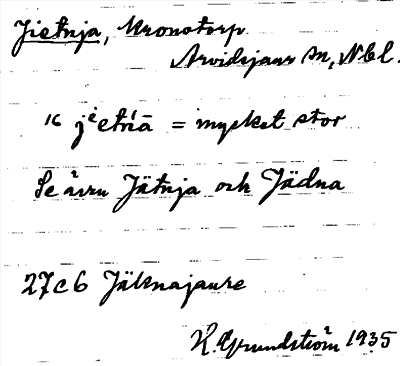 Jietnja, Kronotorp.
Arvidsjaurs sn, Nbl.
= mycket stor
Se även Jätnja och Jädna
27c6 Jälknajaure
K. Grundström 1935